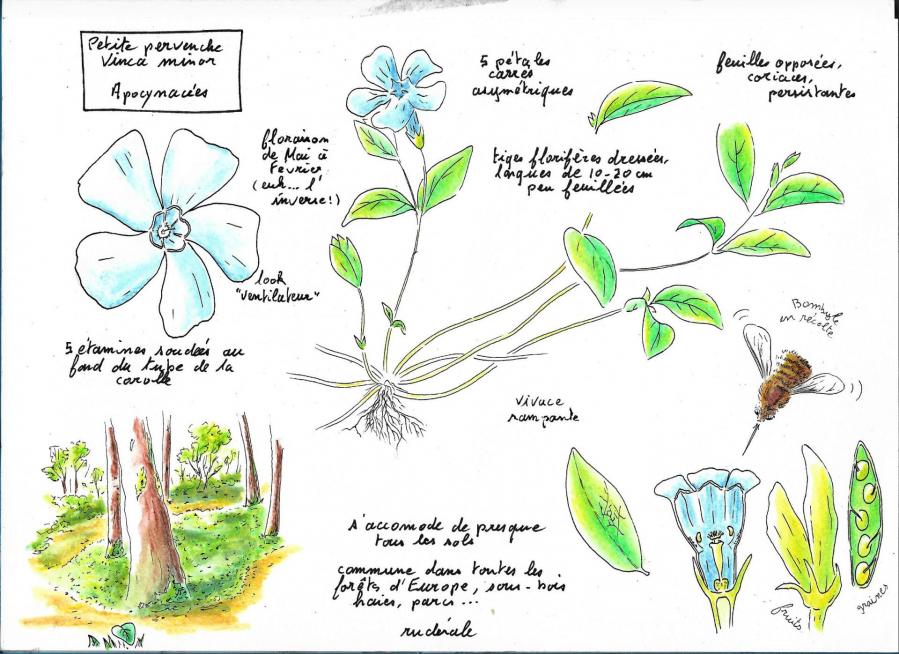 Petite pervenche
Vinca minor
Apocynacées
floraison
de Mai à
Fevrier
(euh... l'
inverse!)
5 pétales
carrés
asymétriques
feuilles opposées,
coriaces,
persistantes
tiges florifères dressées,
longues de 10-20 cm
peu feuillées
look
"ventilateur"
5 étamines soudées au
fond du type de la
corolle
Bombyle
en récolte
vivace
rampante
s'accomode de presque
tous les sols
commune dans toutes les
forêts d'Europe, sous-bois
haies, parcs...
rudérale
fruits
graines